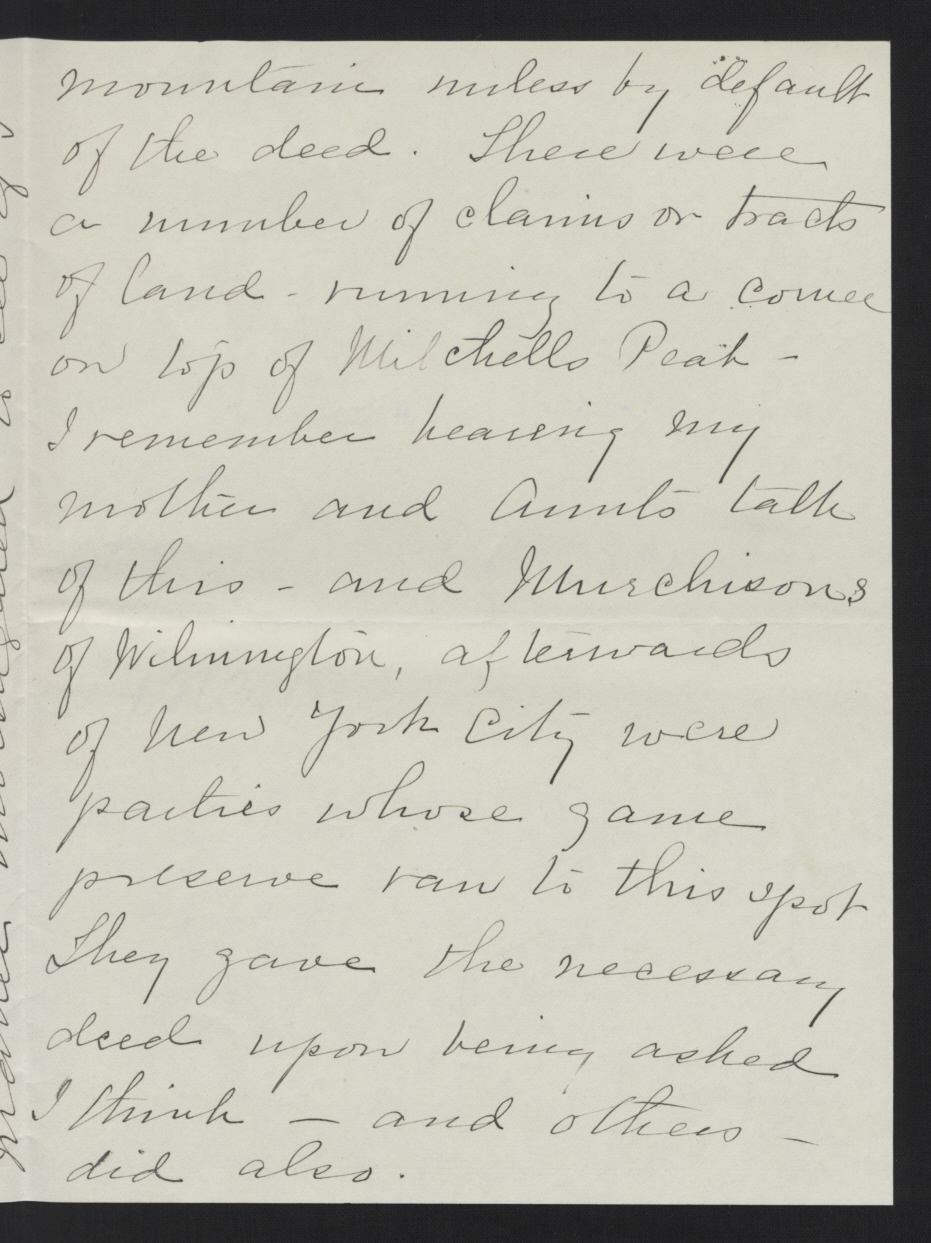 mountain unless by default
of the deed. There were
a number of claims or tracts
of land - running to a corner
on top of Mitchells Peak -
I remember hearing my
mother and Aunts talk
of this - and Murchisons
of Wilmington, afterwards
of New York City were
parties whose game
preserve ran to this spot
They gave the necessary
deed upon being asked
I think - and others -
did also.